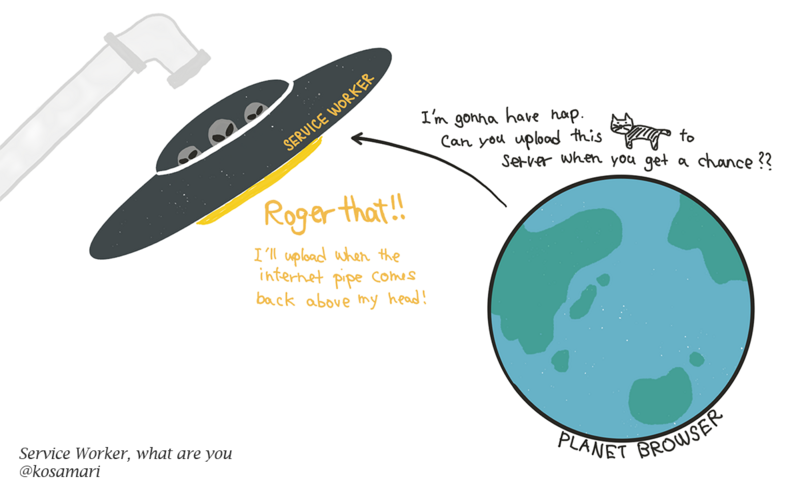 SERVICE WORKER
I'm gonna have nap.
Can you upload this to
server when you get a chance??
Roger that!!
I'll upload when the
internet pipe comes
back above my head!
PLANET BROWSER
Service Worker, what are you
@kosamari